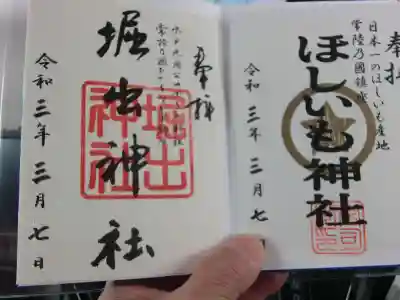 奉拝
日本一のほしいも産地
常陸乃國鎮座
ほしいも神社
令和三年三月七日
奉拝
常陸乃國
堀出神社
堀出神社
令和三年三月七日